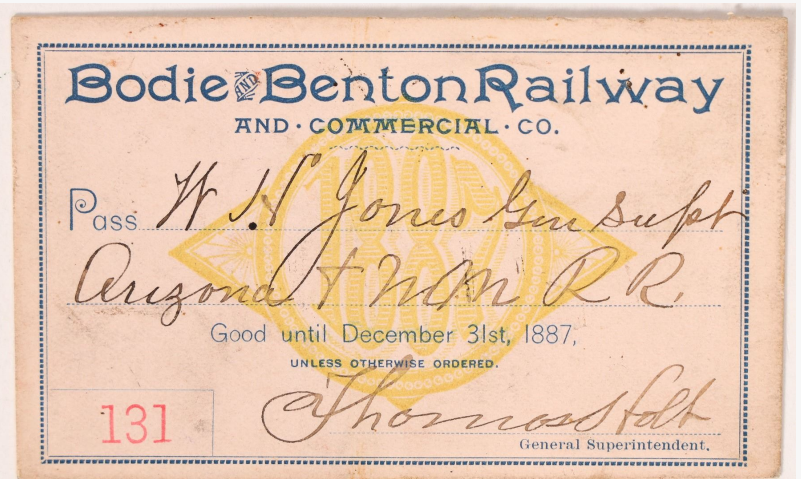 Bodie AND Benton Railway
AND · COMMERCIAL · CO.
1887
Pass W N Jones Gen Supt
Arizona + N M R R.
Good until December 31st, 1887,
UNLESS OTHERWISE ORDERED.
131
Thomas Holt
General Superintendent.